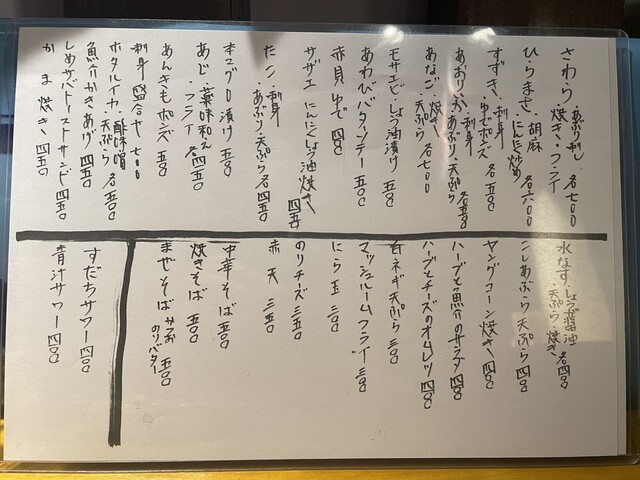 さわら・炙り刺し
・焼き・フライ 各七〇〇
ひらまさ・胡麻
・にんにく炒め 各六〇〇
すずき・刺身
・ゆでポンズ 各五〇
あおりいか・刺身
・あぶり・天ぷら 各五〇
あなご・焼き
・天ぷら 各七〇〇
モサエビ・しょう油漬け 五〇
あわびバタソテー 五〇
赤貝ゆで 四〇
サザエ にんにくしょう油焼き 四五〇
たこ・刺身
・あぶり・天ぷら 各四五〇
本マグロ漬け 五〇
あじ・薬味和え
・フライ 各四五〇
あんきもポンズ 五〇
刺身盛合せ 七〇〇
ホタルイカ・酢味噌
・天ぷら 各五五〇
魚介かきあげ 四五〇
しめサバトーストサンド 四五〇
かま焼き 四五〇
水なす・しょうが醤油
・天ぷら・焼き 各四〇
こしあぶら天ぷら 四〇
ヤングコーン焼き 四〇
ハーブと魚介のサラダ 四〇
ハーブとチーズのオムレツ 四〇
白ネギ天ぷら 三〇
マッシュルームフライ 三〇
にら玉 三〇
のりチーズ 三五〇
赤天 三五〇
中華そば 五〇
焼きそば 五〇
まぜそば 五〇
のりバター
すだちサワー 四〇
青汁サワー 四〇